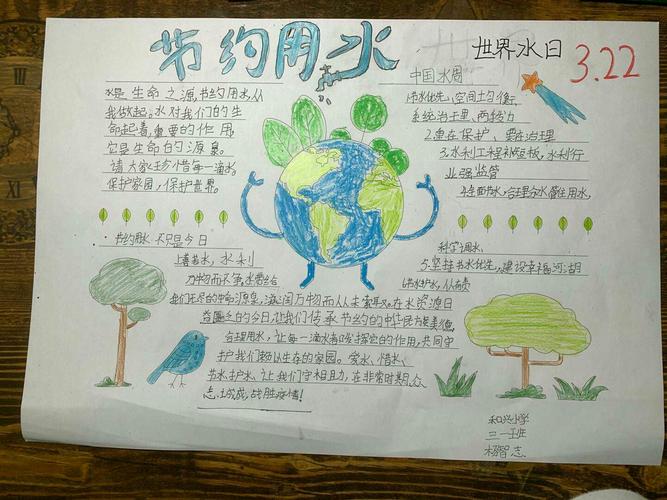 节约用水
世界水日
3.22
中国水周
水是生命之源,节约用水,从
我做起。水对我们的生
命起着重要的作用,
它是生命的源泉。
请大家珍惜每一滴水。
保护家园,保护世界。
1.节水优先,空间均衡,
系统治理,两手发力
2.重在保护、要在治理
3.水利工程补短板,水利行
业强监管
4.全面节水,合理分水管住用水,
科学调水
5.坚持节水优先,建设幸福河湖
节约用水 不只是今日
上善若水,水利
万物而不争,水带给
我们无尽的生命源泉,滋润万物而从未索取。在水资源日
益匮乏的今日,让我们传承节约的中华民族美德,
合理用水,让每一滴水都发挥它的作用,共同守
护我们赖以生存的家园。爱水、惜水、
节水,护水,让我们守相助,在非常时期,众
志成城,战胜疫情!
和兴小学
三一班
杨智志